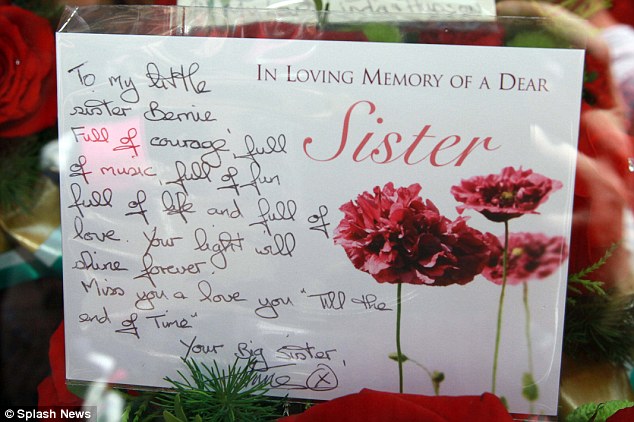 IN LOVING MEMORY OF A DEAR
Sister
To my little
sister Bernie
Full of courage, full
of music, full of fun
full of life and full of
love. Your light will
shine forever.
Miss you a love you "Till the
end of Time"
Your Big sister,
© Splash News